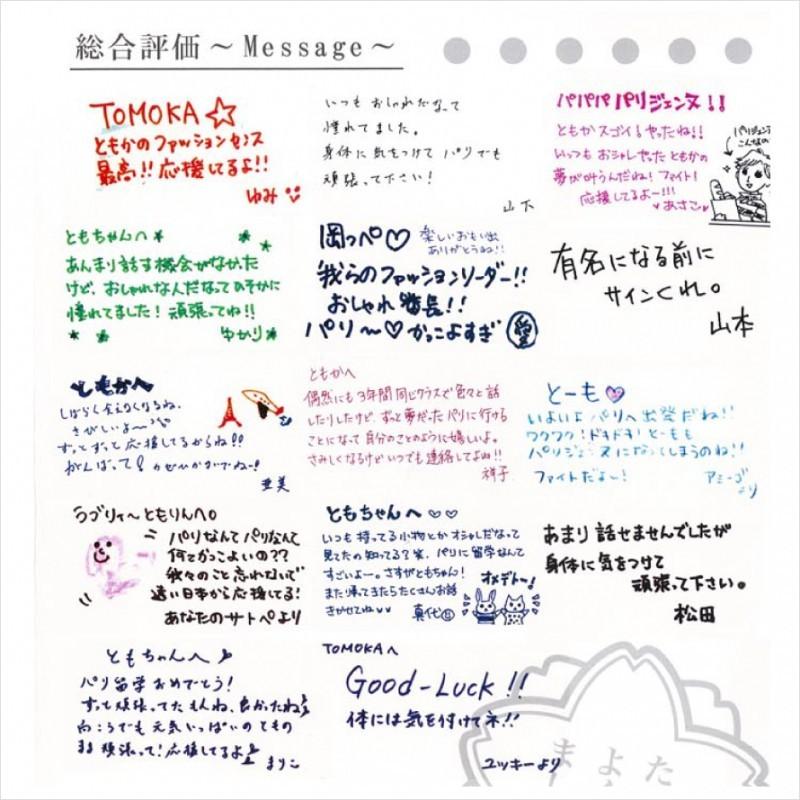 総合評価～Message～
TOMOKA☆
ともかのファッションセンス
最高!!応援してるよ!!
ゆみ
いつもおしゃれだなって
憧れてました。
身体に気をつけてパリでも
頑張って下さい!
山下
パパパパリジェンヌ!!
ともかスゴイ!やったね!!
いっつもおシャレやったともかの
夢が叶うんだね!ファイト!
応援してるよー!!!
♥あさこ♥
パリジェンヌ
こんなの
ともちゃんへ
あんまり話す機会がなかった
けど、おしゃれなんだなってひそかに
憧れてました!頑張ってね!!
ゆかり
岡っぺ♡
楽しいおもい出
ありがとうね!!
我らのファッションリーダー!!
おしゃれ番長!!
パリ～♡かっこよすぎ
愛
有名になる前に
サインくれ。
山本
ともかへ
しばらく会えなくなるね。
さびしいよ～
ずっとずっと応援してるからね!!
がんばって!かぜひかないでねー!
亜美
ともかへ
偶然にも3年間同じクラスで色々と話
したりしたけど、ずっと夢だったパリに行ける
ことになって自分のことのように嬉しいよ。
さみしくなるけどいつでも連絡してよね!!
祥子
とーも♥
いよいよパリへ出発だね!!
ワクワク!ドキドキ!とーもも
パリジェンヌになってしまうのね!!
ファイトだよー!
アミーゴより
ラブリィ～ともりんへ。
パリなんてパリなんて
何てかっこよいの??
我々のこと忘れないで
遠い日本から応援してる!
あなたのサトペより
ともちゃんへ♡♡
いつも持ってる小物とかオシャレだなって
見てたの知ってる?笑、パリに留学なんて
すごいよー。さすがともちゃん!
また帰ってきたらたくさんお話
きかせてね♥♥
真代
オメデトー!
あまり話せませんでしたが
身体に気をつけて
頑張って下さい。
松田
ともちゃんへ♪
パリ留学おめでとう!
ずっと頑張ってたもんね、良かったね♪
向こうでも元気いっぱいのともの
まま頑張って!応援してるよ♪
まりこ
TOMOKAへ
Good-Luck!!
体には気を付けてネ!!
ユッキーより
まよた